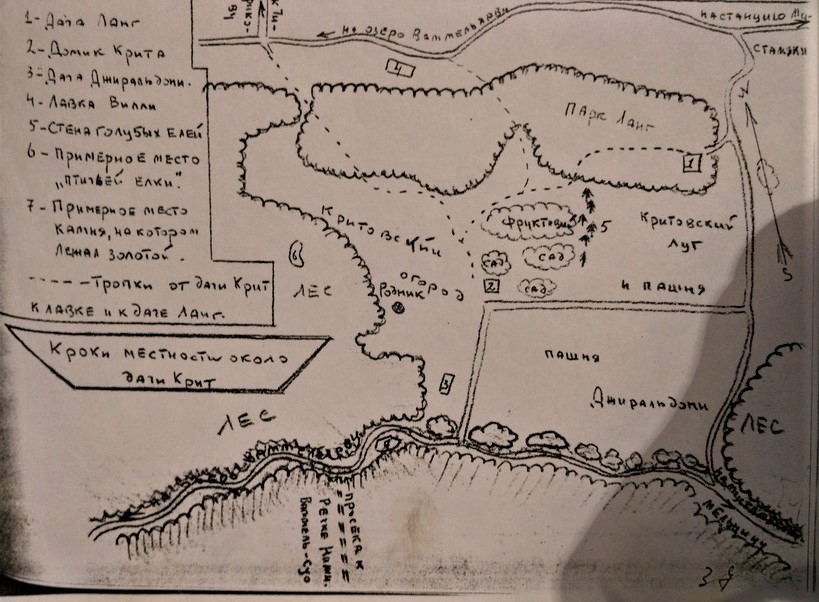 1-Дача Ланг
2-Домик Крита
3-Дача Джиральдони.
4-Лавка Вилли
5-Стена голубых елей
6-Примерное место
„птичьей елки".
7-Примерное место
камня, на котором
лежал золотой.
----Тропки от дачи Крит
к лавке и к даче Ланг.
Кроки местности около
дачи Крит
на озеро Ваммельярви
на станцию
4
Парк Ланг
1
N
S
Критовский
огород
фруктовый
5
сад
сад
сад
2
Критовский
луг
и пашня
6
лес
Родник
3
пашня
Джиральдони
лес
лес
просека к
речке
Ваммель-Суо
мельницу
38